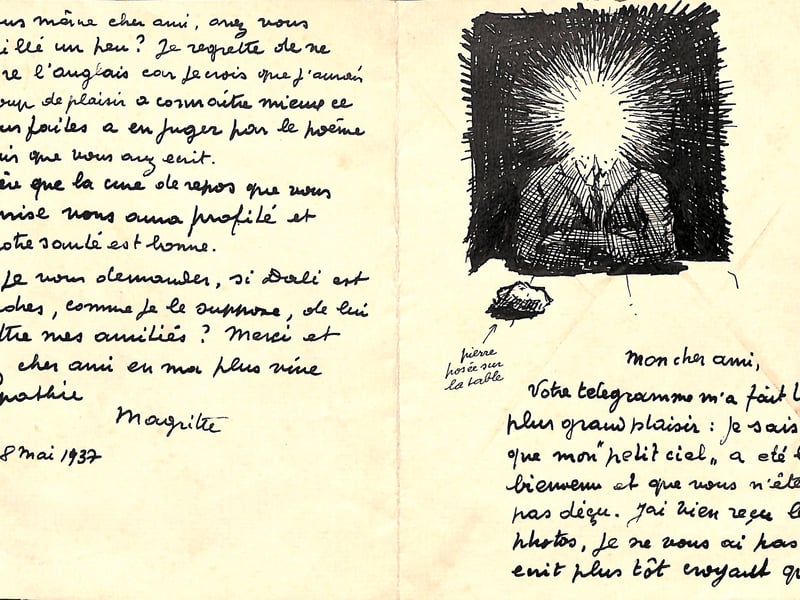 us même cher ami, avez vous
illé un peu? Je regrette de ne
re l'anglais car je crois que j'aurais
oup de plaisir a connaitre mieux ce
us faites a en juger par le poème
is que vous avez ecrit.
ère que la cure de repos que vous
rise vous aura profité et
otre santé est bonne.
Je vous demander, si Dali est
dres, comme je le suppose, de lui
ttre mes amitiés? Merci et
cher ami en ma plus vive
pathie
Magritte
8 Mai 1937
pierre
posée sur
la table
Mon cher ami,
Votre telegramme m'a fait l
plus grand plaisir : je sais
que mon "petit ciel„ a eté l
bienvenu et que vous n'ête
pas déçu. J'ai bien reçu le
photos, je ne vous ai pas
ecrit plus tôt croyant qu